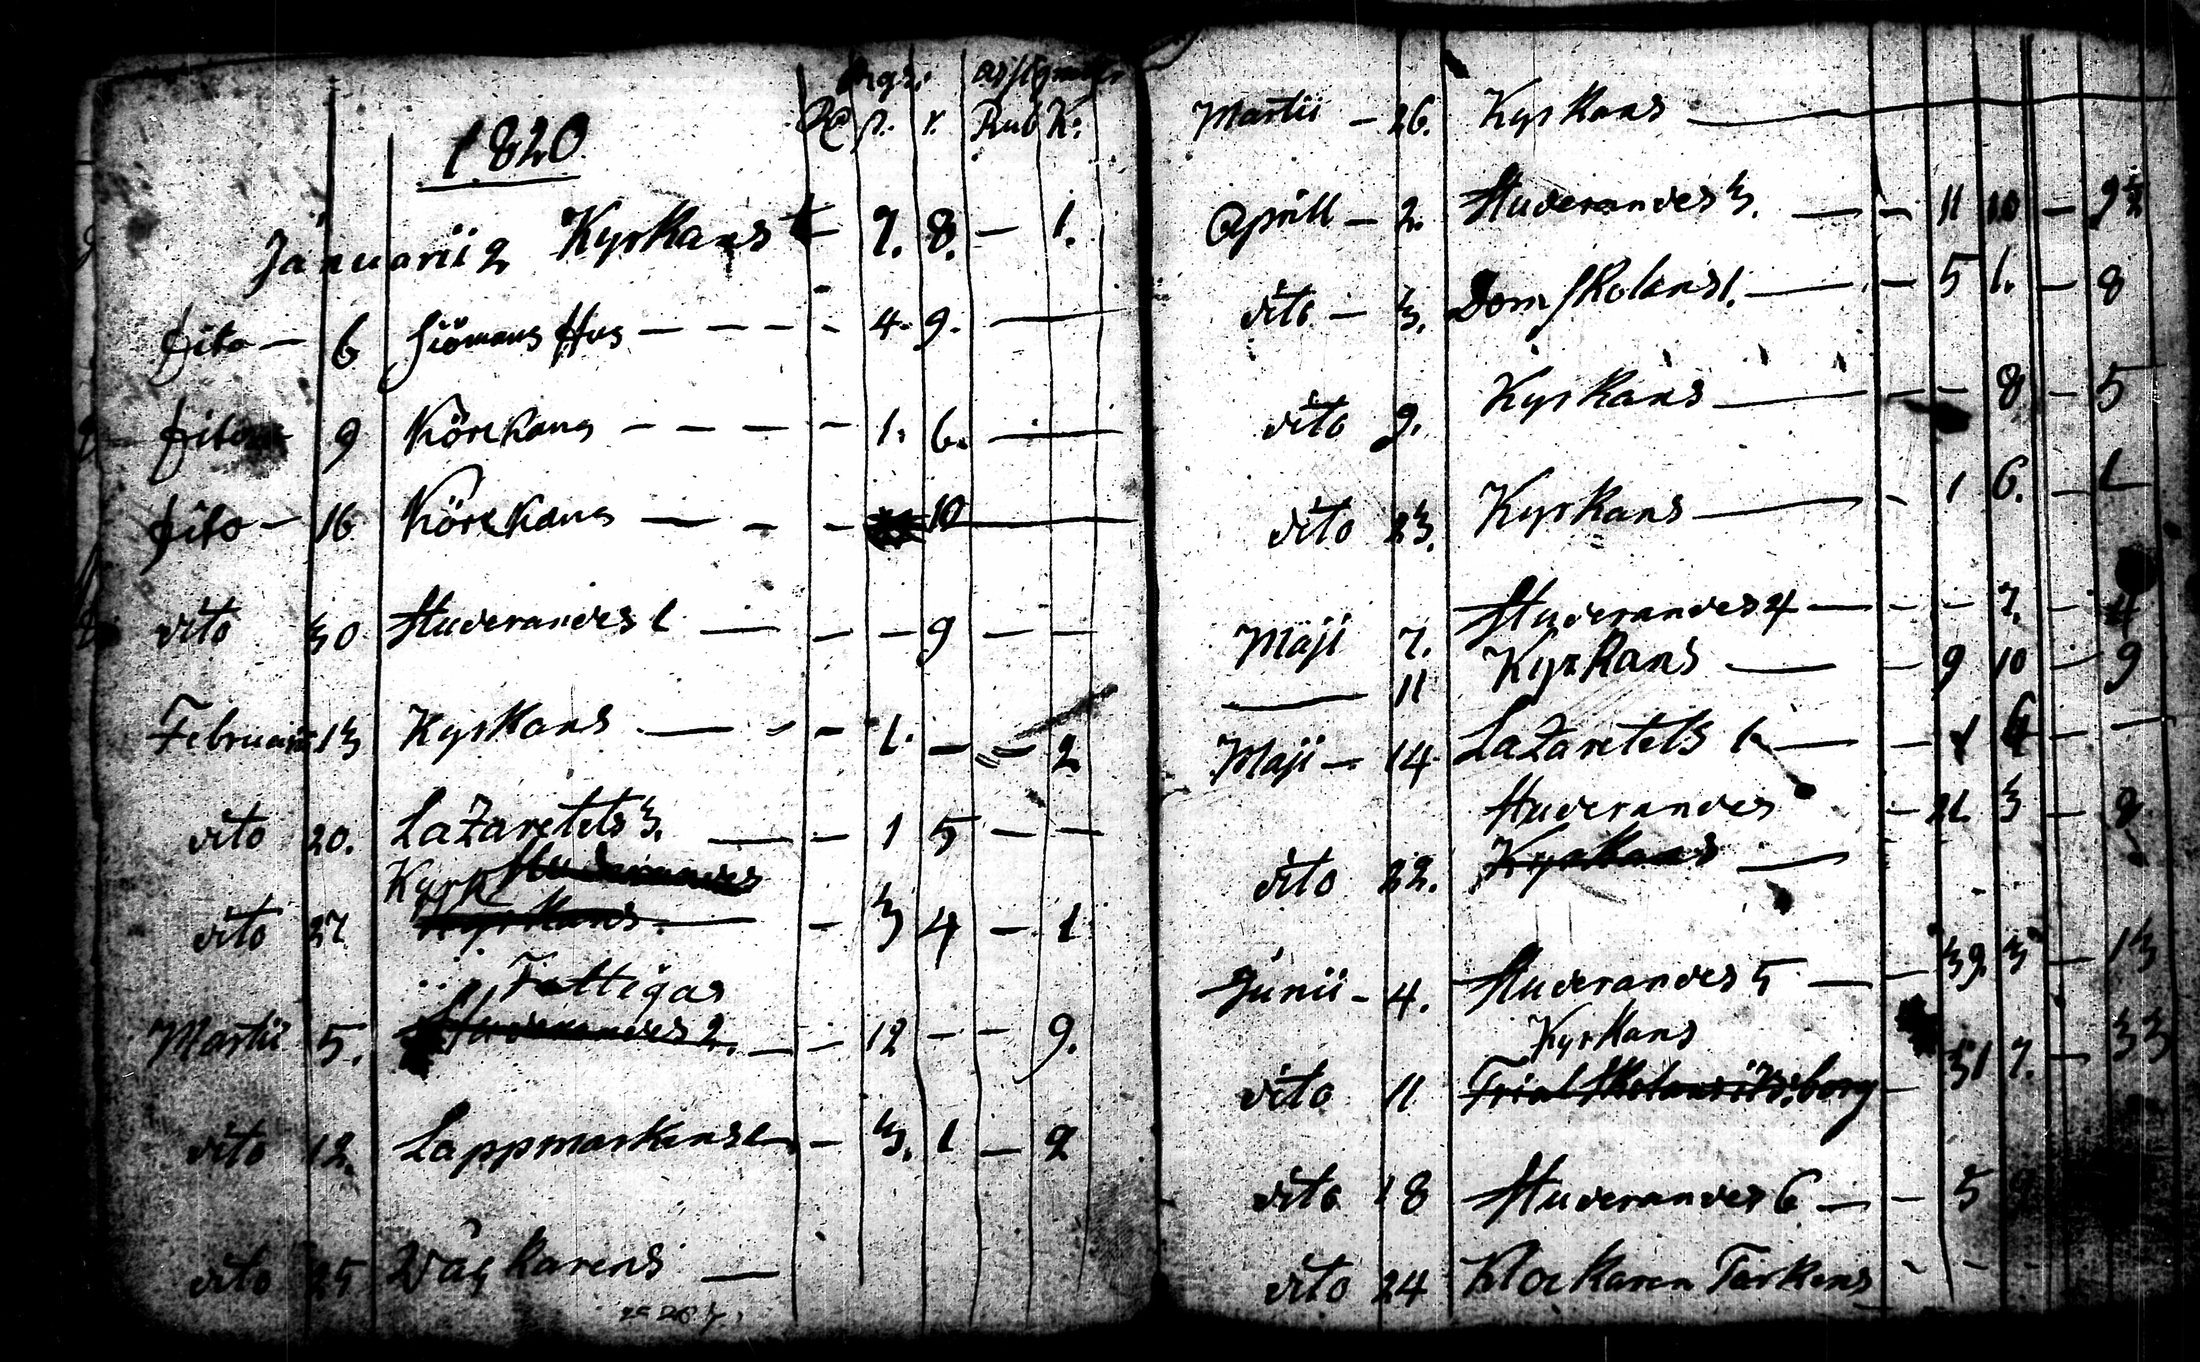 1820
Rub K:
Januarii 2 Kyrkans — 7. 8. — 1.
dito — 6 Siömans Hus — — — — - 4. 9. —
dito 9 Körckans — — — — - 1. 6. —
dito — 16 Körckans — - - 10 —
dito 30 Studerandes 1 — — — 9 — —
Februarii 13 Kyrkans — - - 1. — — 2
dito 20. Lazaretets 3. — — 1 5 — —
Kyrk Studerandes
dito 27. Kyrkans. — - 3 4 — 1
Fattigas
Martii 5. Studerandes 2. — — 12 — — 9.
dito 12. Lappmarkens — 3. 1 — 2
dito 25 Kyrkans —
Martii — 26. Kyrkans —
Aprill — 2. Studerandes 3. — — 11 10 — 9½
dito — 3. Dom Skolans 1. — — 5 1. — 8
dito 9. Kyrkans — — 8 — 5
dito 23. Kyrkans — - 1 6. — 1
Maji 7. Studerandes 4 — - - 7. - 4
— 11 Kyrkans — - 9 10 — 9
Maji — 14. Lazaretets 1 — - 1 — —
Studerandes - 21. 3 —
dito 22. Kyrkans —
Junii - 4. Studerandes 5 — — 39. 3 — 13
Kyrkans
dito 11 Trial Skolans borg - 51 7. — 33
dito 18 Studerandes 6 — - 5
dito 24 Klockaren Tarkens - - -